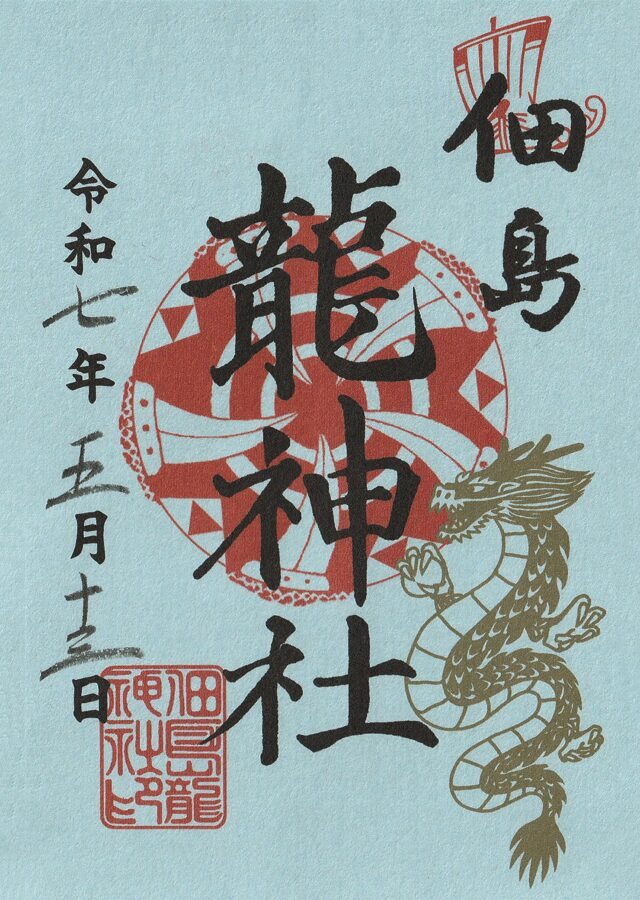 佃島
龍神社
令和七年五月十三日
佃島龍
神社印